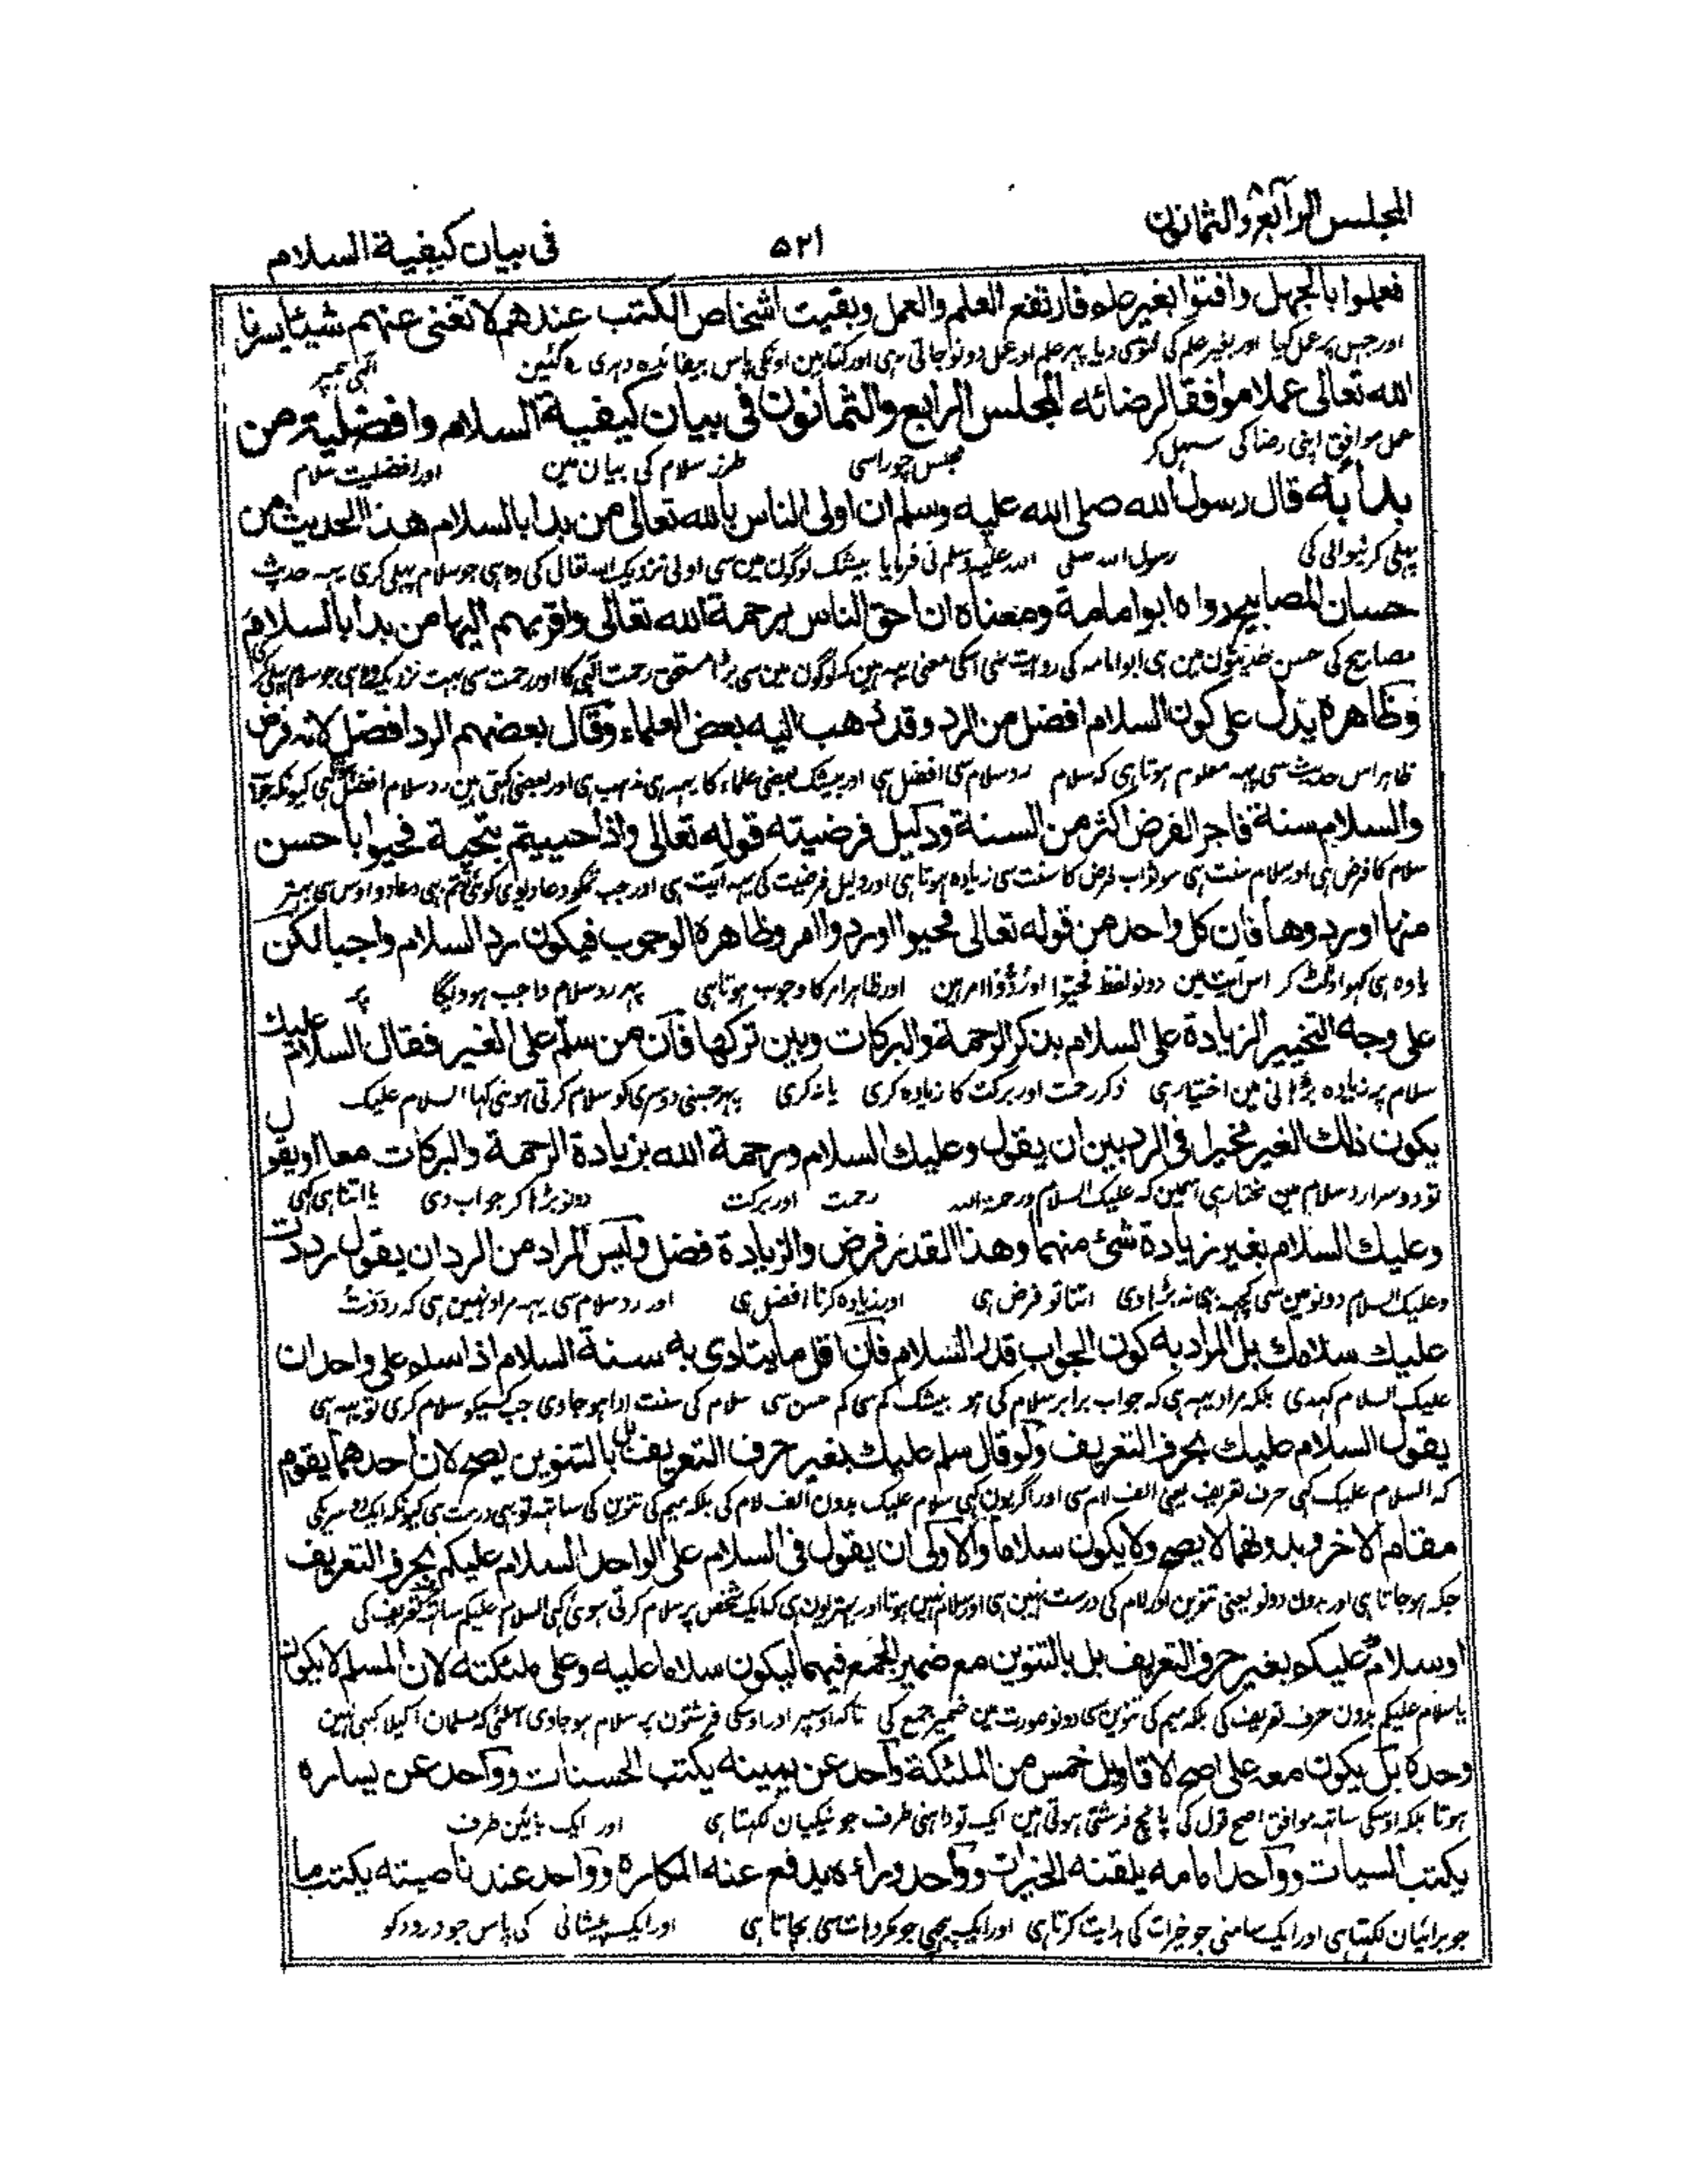 المجلس الرابع والثمانون ۵۲۱ فى بيان كيفية السلام
فعملوا بالجهل وافتوا بغير علم فارتفع العلم والعمل وبقيت اشخاص الكتب عندهم لا تغنى عنهم شيئا يسرنا
اور جہل پر عمل کیا اور بغیر علم کی فتوی دیا پہر علم اور عمل دونو جاتی رہی اور کتابین اونکی پاس بیفائدہ دہری رہ گئین الہی ہمپر
الله تعالى عملا موافقا لرضائه المجلس الرابع والثمانون فى بيان كيفية السلام وافضلية من
عمل موافق اپنی رضا کی سہل کر مجلس چوراسی طرز سلام کی بیان مین اور افضلیت سلام
بدأ به قال رسول الله صلى الله عليه وسلم ان اولى الناس بالله تعالى من بدا بالسلام هذا الحديث من
پہلی کرنیوالی کی رسول اللہ صلی اللہ علیہ وسلم نی فرمایا بیشک لوگون مین سی اولی نزدیک اللہ تعالی کی وہ ہی جو سلام پہلی کری یہہ حدیث
حسان المصابيح رواه ابو امامة ومعناه ان احق الناس برحمة الله تعالى واقربهم اليها من بدا بالسلام
مصابیح کی حسن حدیثون مین ہی ابو امامہ کی روایت سی اسکی معنی یہہ ہین کہ لوگون مین سی بڑا مستحق رحمت الہی کا اور رحمت سی بہت نزدیک وہ ہی جو سلام پہلی کری
وظاهره يدل على كون السلام افضل من الرد وقد ذهب اليه بعض العلماء وقال بعضهم الرد افضل لانه فرض
ظاہر اس حدیث سی یہہ معلوم ہوتا ہی کہ سلام رد سلام سی افضل ہی اور بیشک بعضی علماء کا یہہ ہی مذہب ہی اور بعضی کہتی ہین رد سلام افضل ہی کیونکہ جواب
والسلام سنة فاجر الفرض اكثر من السنة ودليل فرضيته قوله تعالى واذا حييتم بتحية فحيوا باحسن
سلام کا فرض ہی اور سلام سنت ہی سو ثواب فرض کا سنت سی زیادہ ہوتا ہی اور دلیل فرضیت کی یہہ آیت ہی اور جب تمکو دعا دیوی کوئی تو تم بہی دعا دو اوس سی بہتر
منها او ردوها فان كل واحد من قوله تعالى فحيوا او ردوا امر وظاهره الوجوب فيكون رد السلام واجبا لكن
یا وہ ہی کہو اولٹ کر اس آیت مین دونو لفظ فحیوا اور ردوا امر ہین اور ظاہر امر کا وجوب ہوتا ہی پہر رد سلام واجب ہوویگا پر
على وجه التخيير الزيادة على السلام بذكر الرحمة والبركات وبين تركها فان من سلم على الغير فقال السلام عليك
سلام پر زیادہ بڑہانی مین اختیار ہی ذکر رحمت اور برکت کا زیادہ کری یا نہ کری پہر جسنی دوسری کو سلام کرتی ہوئی کہا السلام علیک
يكون ذلك الغير مخيرا فى الرد بين ان يقول وعليك السلام ورحمة الله بزيادة الرحمة والبركات معا او يقول
تو دوسرا رد سلام مین مختار ہی اسمین کہ علیک السلام ورحمۃ اللہ رحمت اور برکت دونو بڑہا کر جواب دی یا اتنا ہی کہی
وعليك السلام بغير زيادة شئ منهما وهذا القدر فرض والزيادة فضل وليس المراد من الرد ان يقول رددت
وعلیک السلام دونو مین سی کچہہ بہی نہ بڑہاوی اتنا تو فرض ہی اور زیادہ کرنا افضل ہی اور رد سلام سی یہہ مراد نہین ہی کہ رددت
عليك سلامك بل المراد به كون الجواب قدر السلام فان اقل ما يتادى به سنة السلام اذا سلم على واحد ان
علیک السلام کہدی بلکہ مراد یہہ ہی کہ جواب برابر سلام کی ہو بیشک کم سی کم جس سی سلام کی سنت ادا ہو جاوی جب کسیکو سلام کری تو یہہ ہی
يقول السلام عليك بحرف التعريف ولو قال سلم عليك بغير حرف التعريف بل بالتنوين يصح لان احدهما يقوم
کہ السلام علیک کہی حرف تعریف یعنی الف لام سی اور اگر یون کہی سلام علیک بدون الف لام کی بلکہ میم کی تنوین کی ساتہہ تو بہی درست ہی کیونکہ ایک دوسریکی
مقام الاخر وبدونهما لا يصح ولا يكون سلاما والاولى ان يقول فى السلام على الواحد السلام عليكم بحرف التعريف
جگہ ہو جاتا ہی اور بدون دونو یعنی تنوین اور لام کی درست نہین ہی اور سلام نہین ہوتا اور بہتر یون ہی کہ ایک شخص پر سلام کرتی ہوئی کہی السلام علیکم ساتہہ حرف تعریف کی
او سلام عليكم بغير حرف التعريف بل بالتنوين مع ضمير الجمع فيهما ليكون سلاما عليه وعلى ملئكته لان المسلم لا يكون
یا سلام علیکم بدون حرف تعریف کی بلکہ میم کی تنوین سی دونو صورت مین ضمیر جمع کی تاکہ اوسپر اور اوسکی فرشتون پر سلام ہو جاوی اسلئی کہ مسلمان اکیلا کبہی نہین
وحده بل يكون معه على اصح الاقاويل خمس من الملئكة واحد عن يمينه يكتب الحسنات وواحد عن يساره
ہوتا بلکہ اوسکی ساتہہ موافق اصح قول کی پانچ فرشتی ہوتی ہین ایک تو داہنی طرف جو نیکیان لکہتا ہی اور ایک بائین طرف
يكتب السيات وواحد امامه يلقنه الخيرات وواحد وراءه يدفع عنه المكاره وواحد عند ناصيته يكتب ما
جو برائیان لکہتا ہی اور ایک سامنی جو خیرات کی ہدایت کرتا ہی اور ایک پیچہی جو مکروہات سی بچاتا ہی اور ایک پیشانی کی پاس جو درود کو